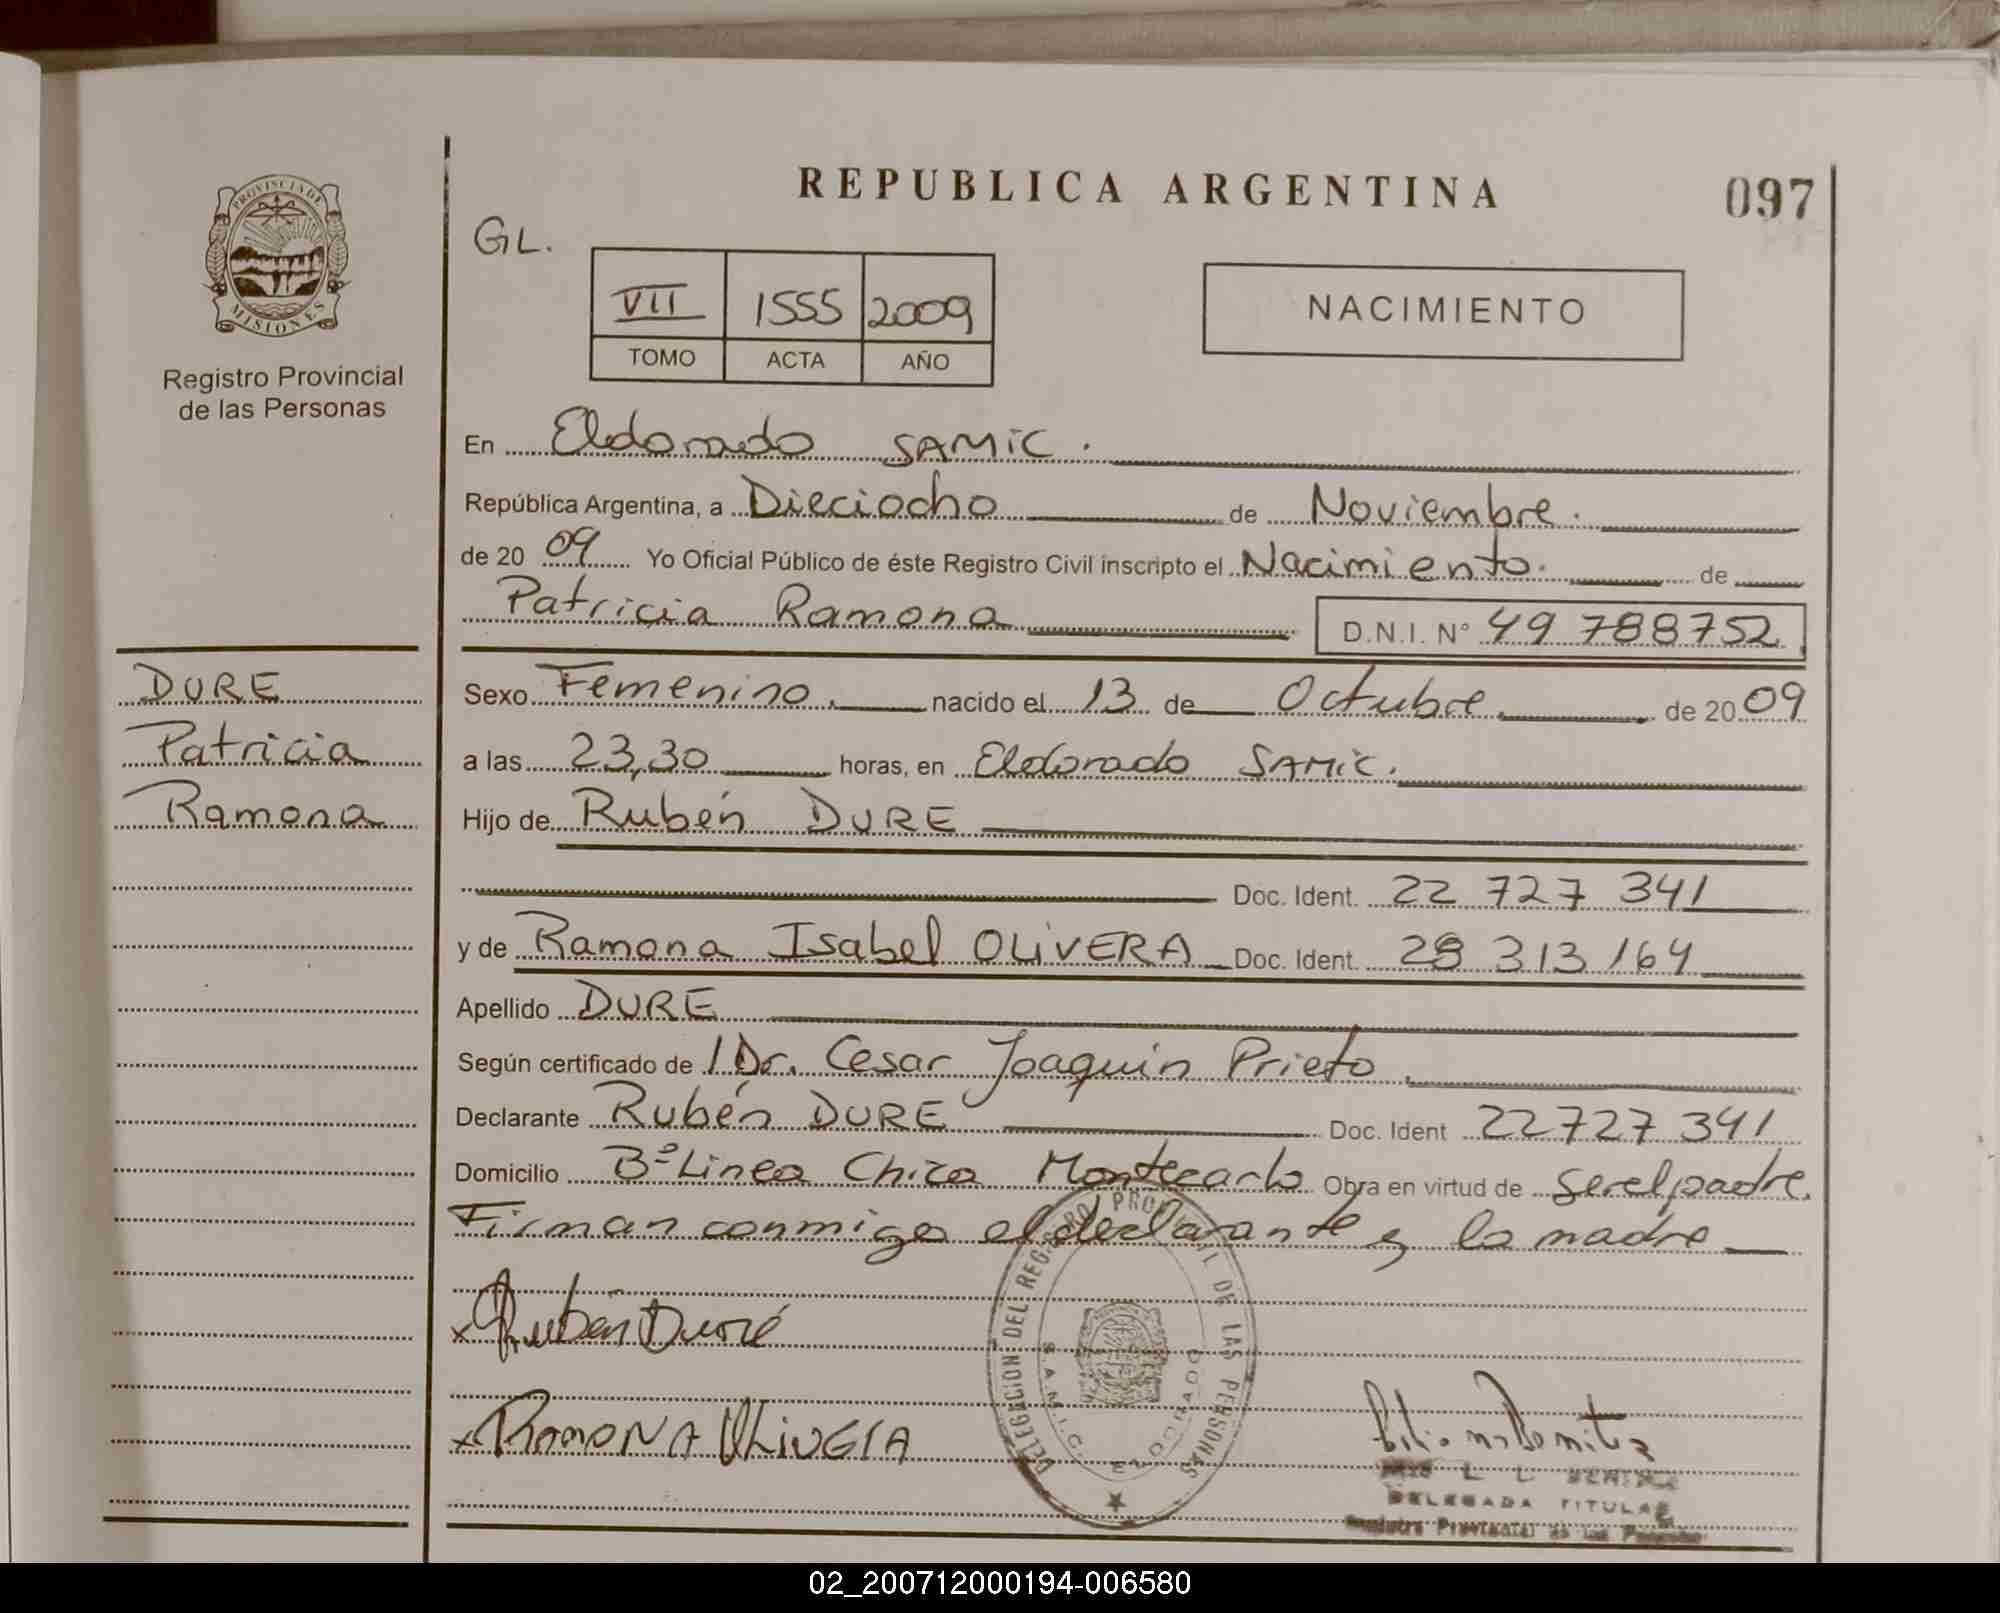 REPUBLICA ARGENTINA
097
PROVINCIA DE
MISIONES
Registro Provincial
de las Personas
GL.
VII 1555 2009
TOMO ACTA AÑO
NACIMIENTO
En Eldorado SAMIC.
República Argentina, a Dieciocho de Noviembre.
de 20 09 Yo Oficial Público de éste Registro Civil inscripto el Nacimiento. de
Patricia Ramona D.N.I. N° 49 788752
DURE
Patricia
Ramona
Sexo Femenino. nacido el 13 de Octubre de 20 09
a las 23,30 horas, en Eldorado SAMIC.
Hijo de Rubén DURE
Doc. Ident. 22 727 341
y de Ramona Isabel OLIVERA Doc. Ident. 28 313 164
Apellido DURE
Según certificado de / Dr. Cesar Joaquin Prieto.
Declarante Rubén DURE Doc. Ident 22727 341
Domicilio Bº Linea Chica Montecarlo Obra en virtud de ser el padre.
Firman conmigo el declarante y la madre
x Rubén Duré
x RAMONA
DELEGACION DEL REGISTRO PROVINCIAL DE LAS PERSONAS
S.A.M.I.C. ELDORADO
L L BENITEZ
DELEGADA TITULAR
Registro Provincial de las Personas
02_200712000194-006580